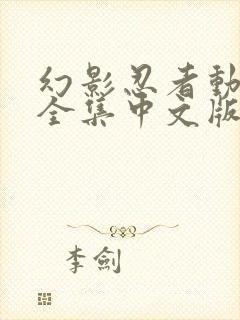 幻影忍者動
全集中文版
李劍